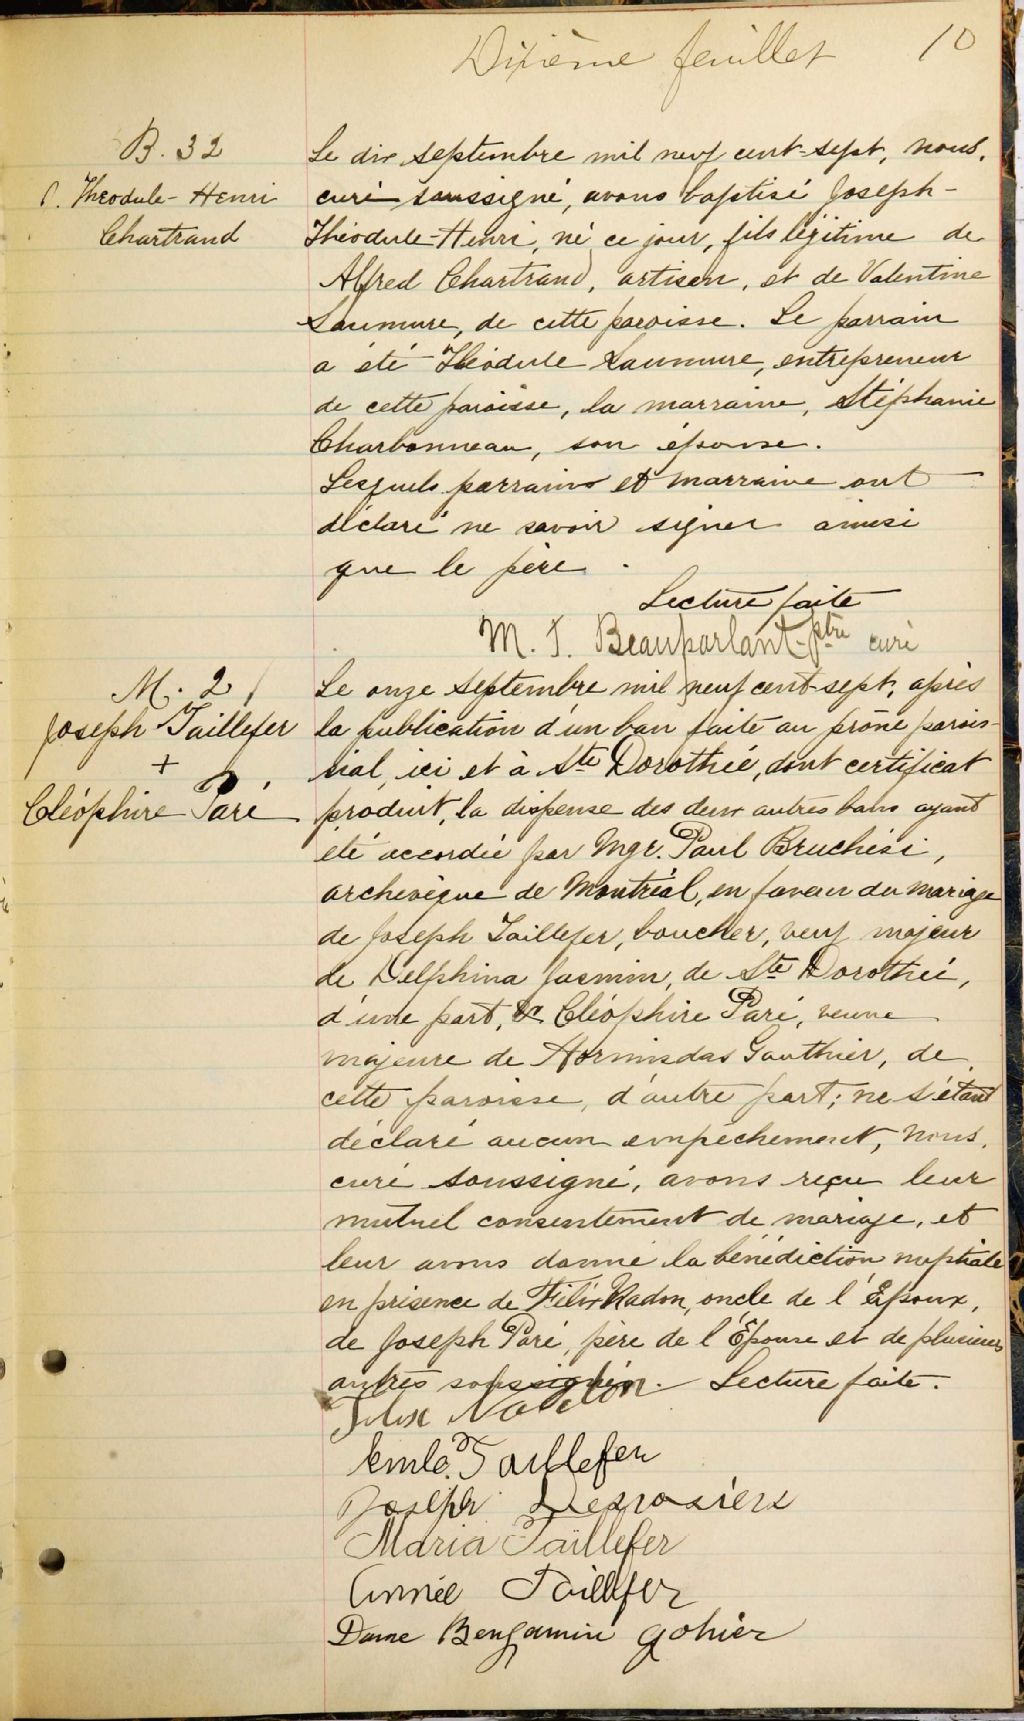 Dixième feuillet 10
B. 32
J. Théodule-Henri
Chartrand
Le dix septembre mil neuf cent-sept, nous,
curé soussigné, avons baptisé Joseph-
Théodule-Henri, né ce jour, fils légitime de
Alfred Chartrand, artisan, et de Valentine
Saumure, de cette paroisse. Le parrain
a été Théodule Saumure, entrepreneur
de cette paroisse, la marraine, Stéphanie
Charbonneau, son épouse.
Lesquels parrain et marraine ont
déclaré ne savoir signer ainsi
que le père.
Lecture faite
M. J. Beauparlant-ptre curé
M. 2
Joseph Taillefer
+
Cléophire Paré
Le onze septembre mil neuf cent-sept, après
la publication d'un ban faite au prône parois-
sial, ici et à Ste Dorothée, dont certificat
produit, la dispense des deux autres bans ayant
été accordée par Mgr. Paul Bruchési,
archevêque de Montréal, en faveur du mariage
de Joseph Taillefer, boucher, veuf majeur
de Delphina Jasmin, de Ste Dorothée,
d'une part, & Cléophire Paré, veuve
majeure de Hormisdas Gauthier, de
cette paroisse, d'autre part; ne s'étant
déclaré aucun empêchement, nous,
curé soussigné, avons reçu leur
mutuel consentement de mariage, et
leur avons donné la bénédiction nuptiale
en présence de Félix Nadon, oncle de l'Époux,
de Joseph Paré, père de l'Épouse et de plusieurs
autres soussignés. Lecture faite.
Felix Nadon
Emile Taillefer
Joseph Desrosiers
Maria Taillefer
Année Taillefer
Dame Benjamin Gohier